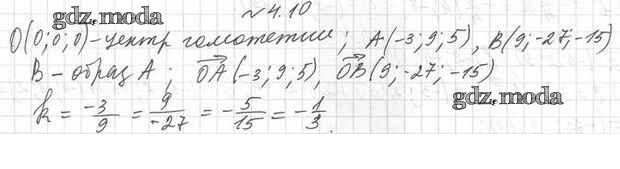 №4.10
gdz.moda
O(0;0;0)-центр гомотетии; A(-3;9;5), B(9;-27;-15)
B - образ A; \overrightarrow{OA}(-3;9;5), \overrightarrow{OB}(9;-27;-15)
gdz.moda
k = \frac{-3}{9} = \frac{9}{-27} = -\frac{5}{15} = -\frac{1}{3}.